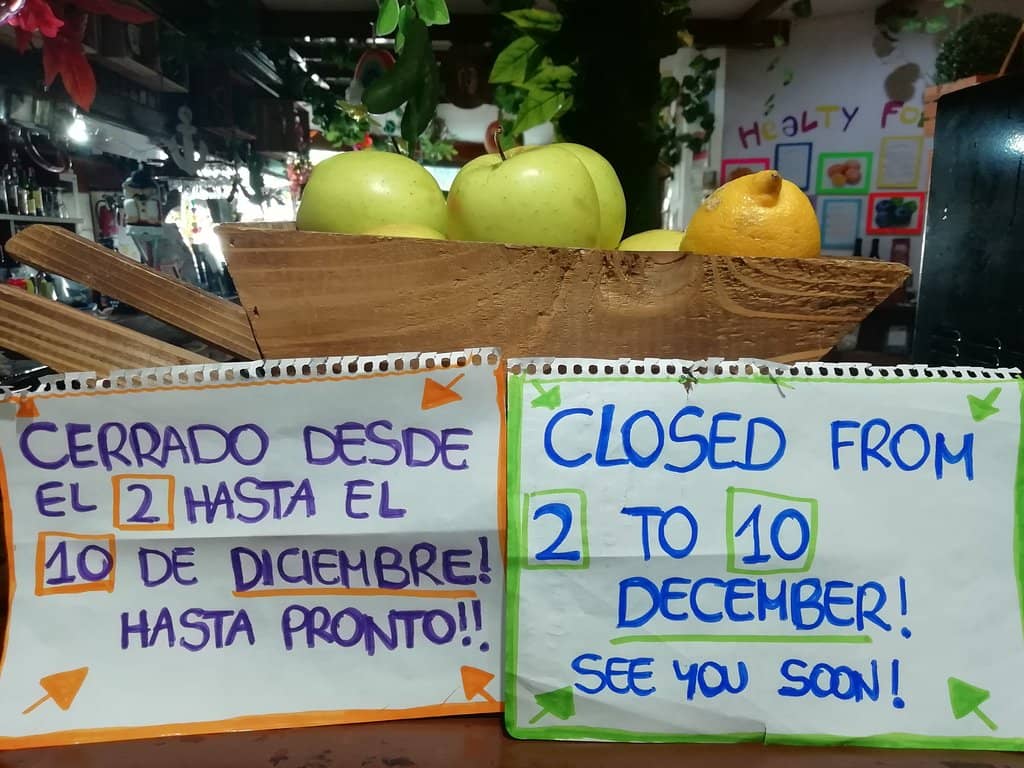 HEALTY FO
CERRADO DESDE
EL 2 HASTA EL
10 DE DICIEMBRE!
HASTA PRONTO!!
CLOSED FROM
2 TO 10
DECEMBER!
SEE YOU SOON!